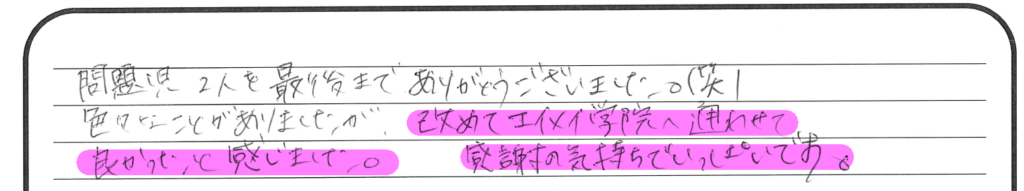 問題児2人を最後までありがとうございました。(笑)
色々なことがありましたが、改めてエイメイ学院へ通わせて
良かったと感じました。 感謝の気持ちでいっぱいです。